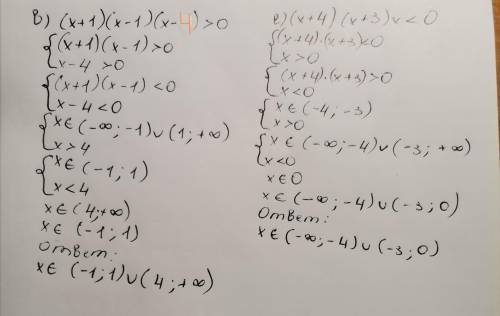 в) (x+1)(x-1)(x-4)>0
{(x+1)(x-1)>0
x-4>0
{(x+1)(x-1)<0
x-4<0
{x∈(-∞;-1)∪(1;+∞)
x>4
{x∈(-1;1)
x<4
x∈(4;+∞)
x∈(-1;1)
Ответ:
x∈(-1;1)∪(4;+∞)
е)(x+4)(x+3)x<0
{(x+4)·(x+3)<0
x>0
{(x+4)·(x+3)>0
x<0
{x∈(-4;-3)
x>0
{x∈(-∞;-4)∪(-3;+∞)
x<0
x∈0
x∈(-∞;-4)∪(-3;0)
Ответ:
x∈(-∞;-4)∪(-3;0)